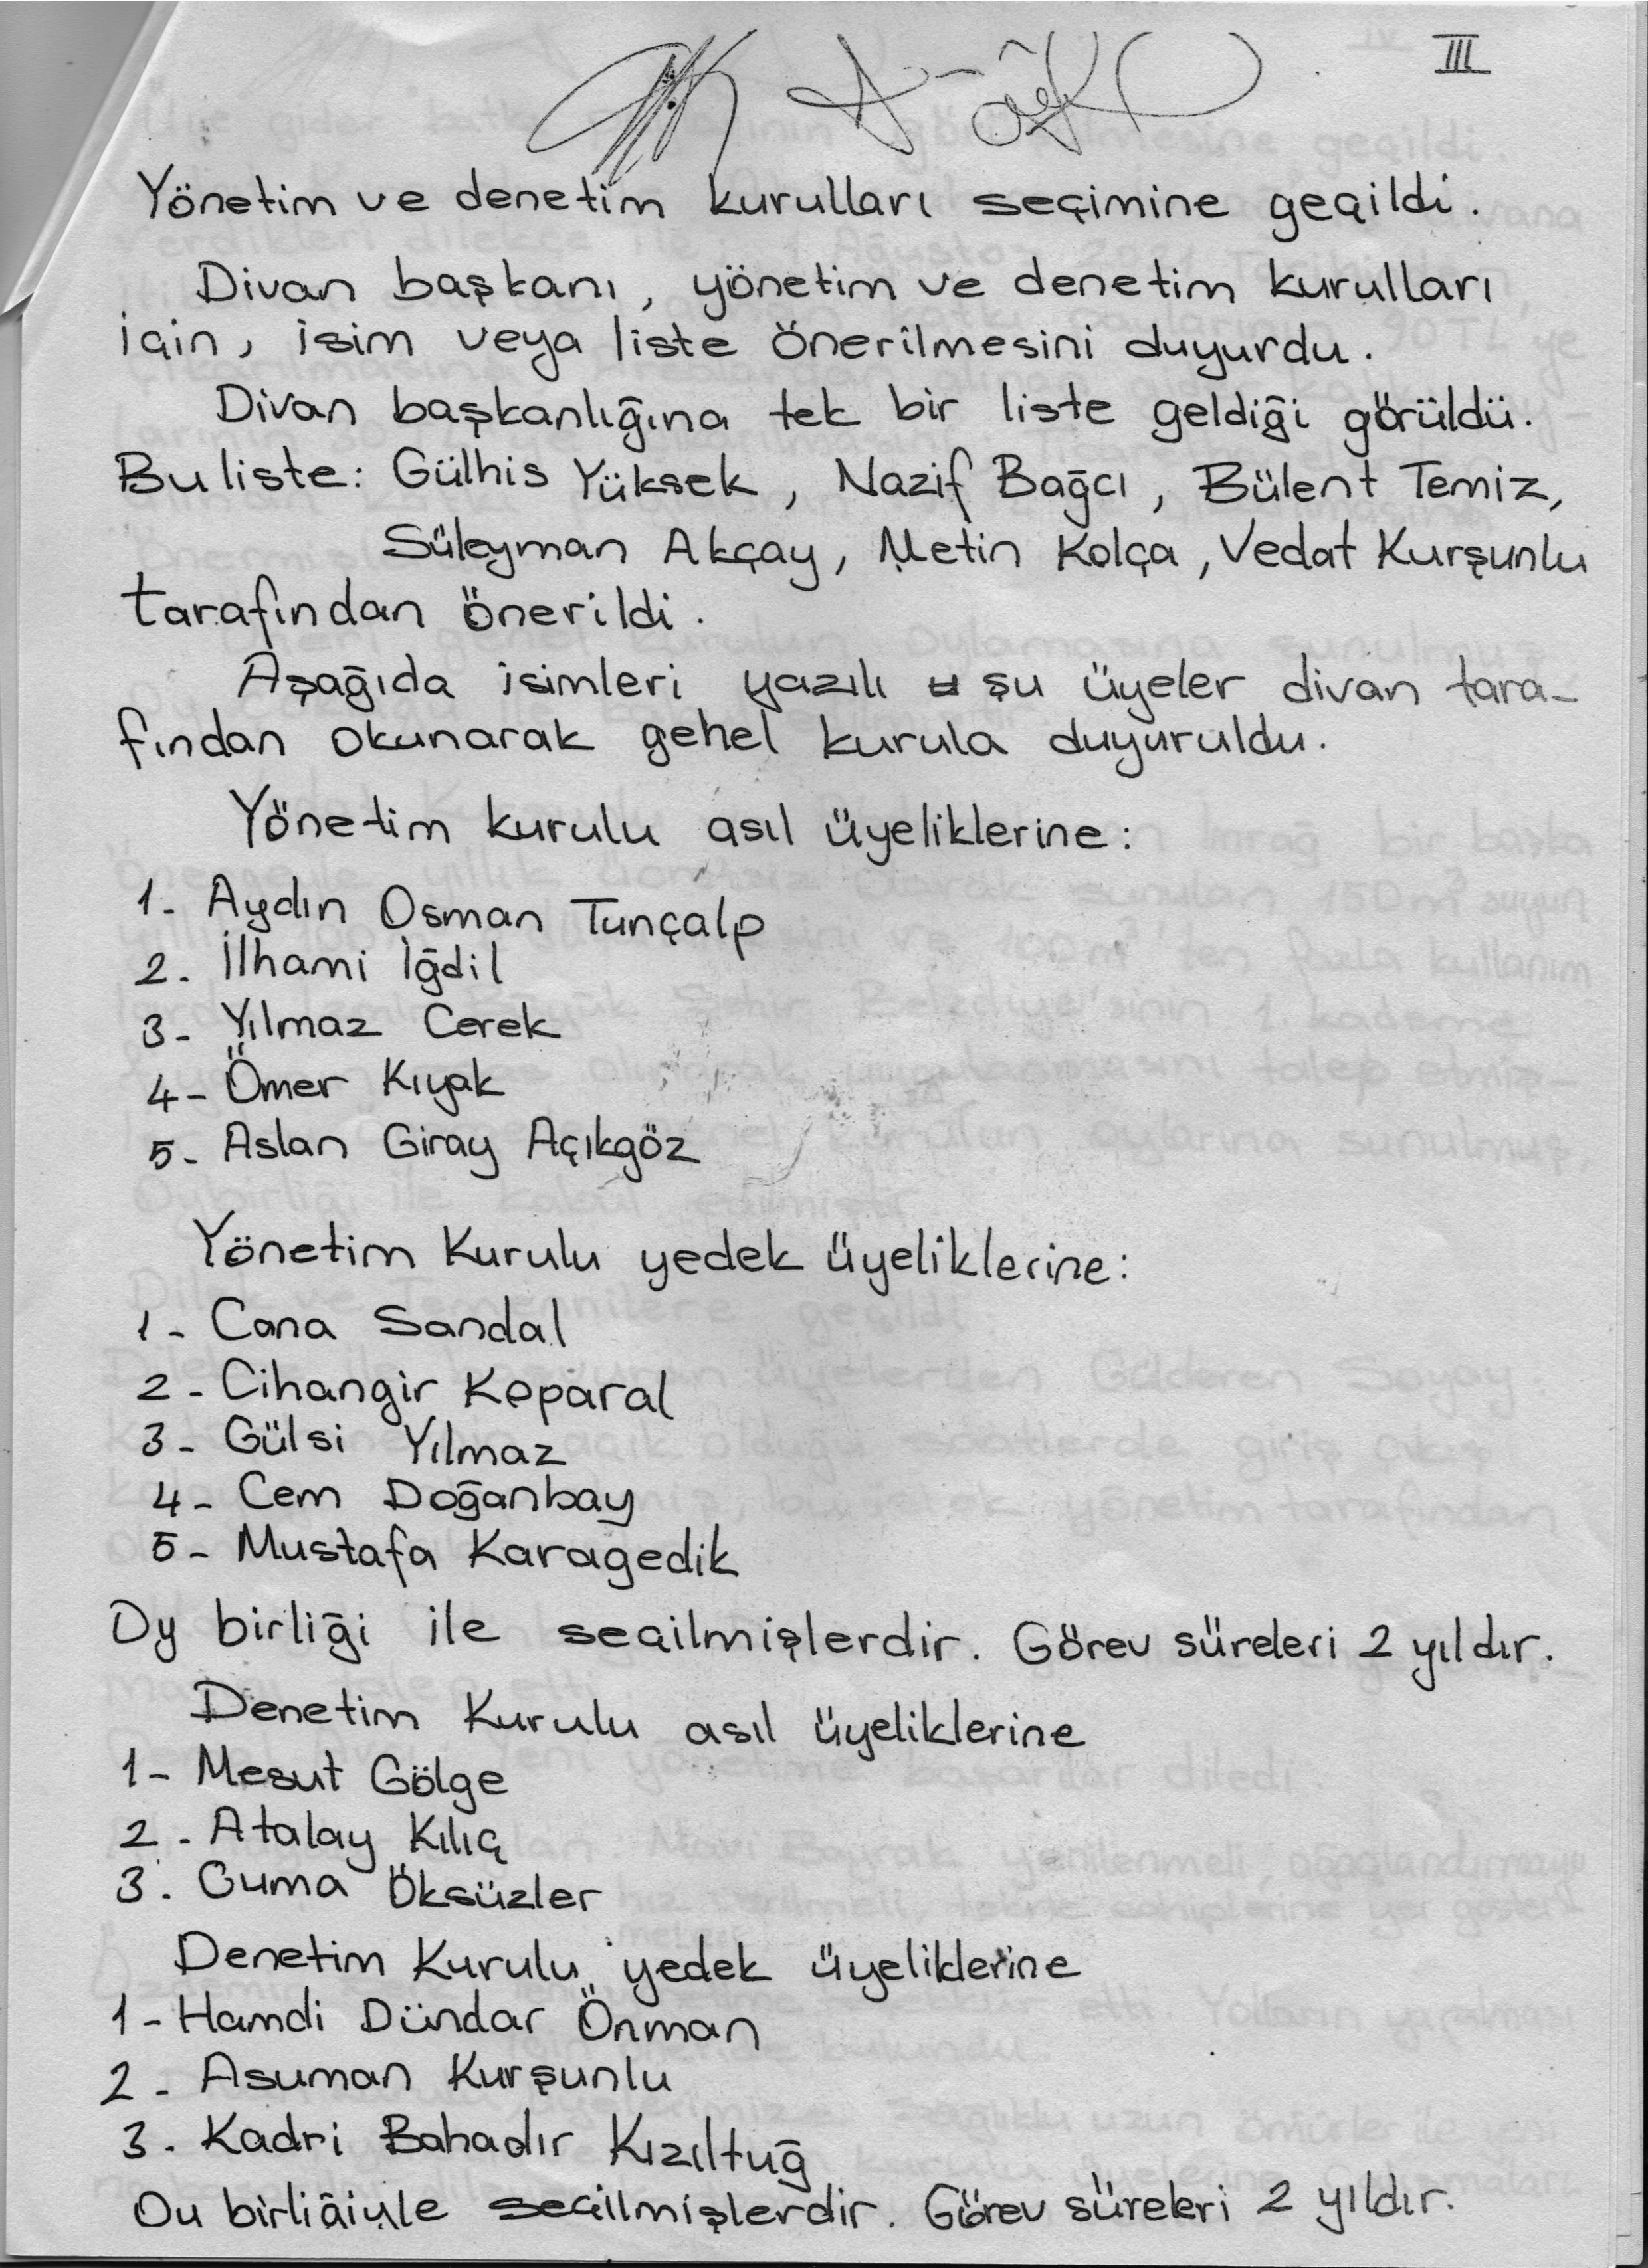 III
Yönetim ve denetim kurulları seçimine geçildi.
Divan başkanı, yönetim ve denetim kurulları
için, isim veya liste önerilmesini duyurdu.
Divan başkanlığına tek bir liste geldiği görüldü.
Bu liste: Gülhis Yüksek, Nazif Bağcı, Bülent Temiz,
Süleyman Akçay, Metin Kolça, Vedat Kurşunlu
tarafından önerildi.
Aşağıda isimleri yazılı şu üyeler divan tara-
fından okunarak genel kurula duyuruldu.
Yönetim kurulu asıl üyeliklerine:
1- Aydın Osman Tunçalp
2- İlhami İğdil
3- Yılmaz Cerek
4- Ömer Kıyak
5- Aslan Giray Açıkgöz
Yönetim Kurulu yedek üyeliklerine:
1- Cana Sandal
2- Cihangir Koparal
3- Gülsi Yılmaz
4- Cem Doğanbay
5- Mustafa Karagedik
Oy birliği ile seçilmişlerdir. Görev süreleri 2 yıldır.
Denetim Kurulu asıl üyeliklerine
1- Mesut Gölge
2- Atalay Kılıç
3. Cuma Öksüzler
Denetim Kurulu yedek üyeliklerine
1- Hamdi Dündar Önman
2- Asuman Kurşunlu
3- Kadri Bahadır Kızıltuğ
Oy birliğiyle seçilmişlerdir. Görev süreleri 2 yıldır.